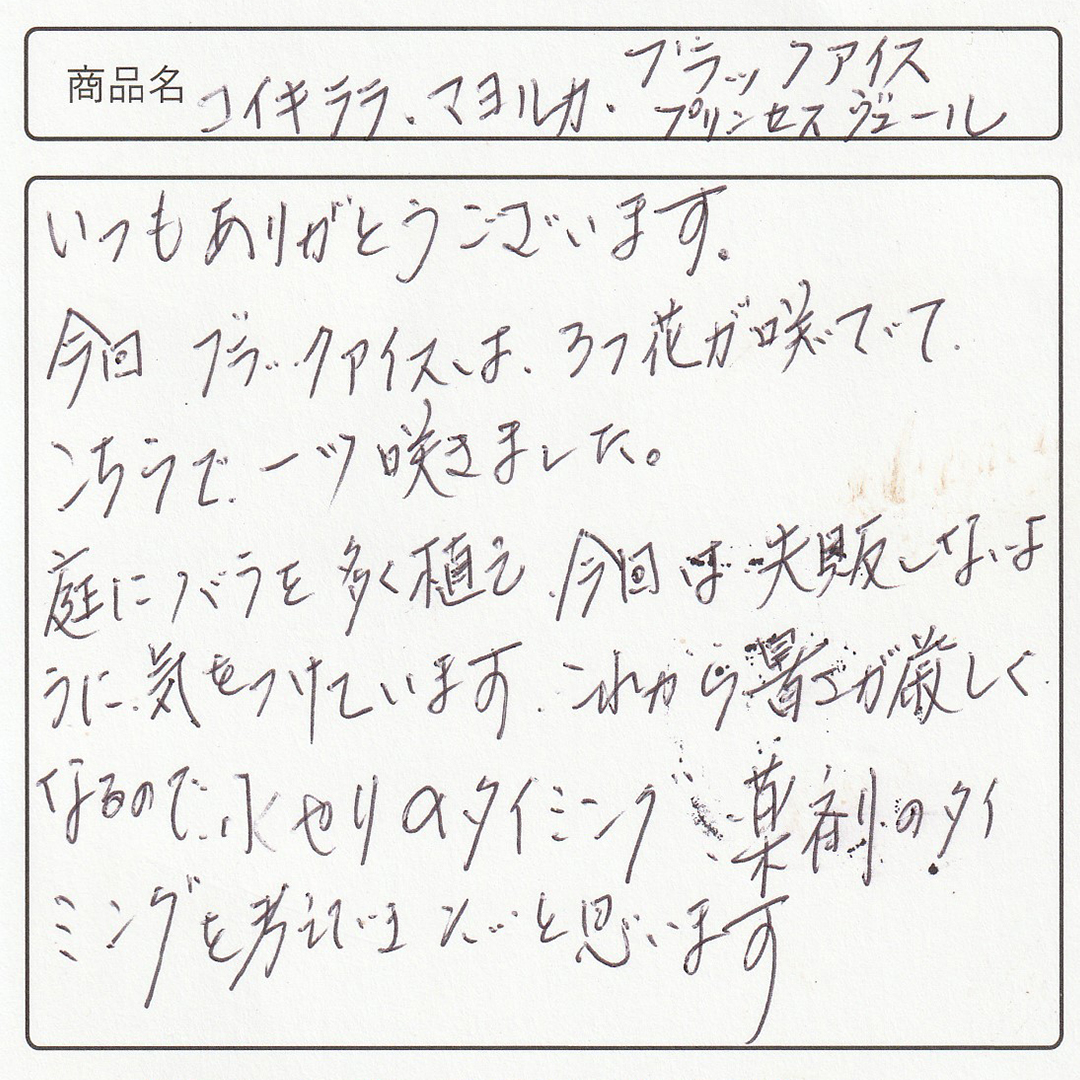 商品名 コイキララ.マヨルカ.ブラックアイス
プリンセスヴェール
いつもありがとうございます。
今回 ブラックアイスは、3つ花が咲いてて.
こちらで一ツ咲きました。
庭にバラを多く植え.今回は失販しないよ
うに気をつけています.これから暑さが厳しく.
なるので.水やりのタイミング 薬剤のタイ
ミングを考えて
と思います